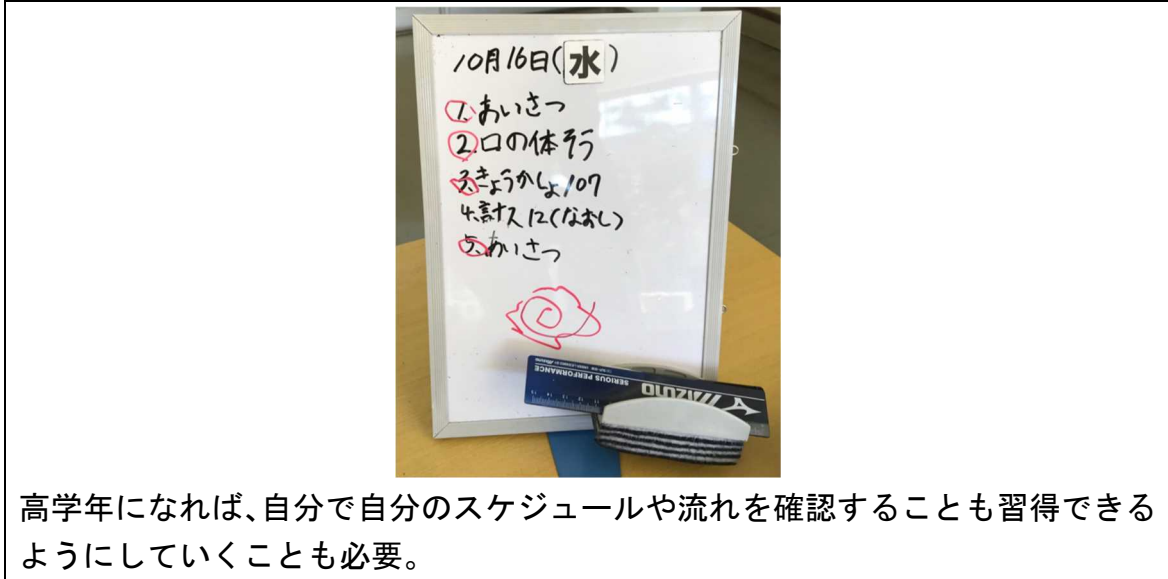 10月16日(水)
1.あいさつ
2.口の体そう
3.きょうかしょ107
4.計ス12(なおし)
5.あいさつ
SERIOUS PERFORMANCE
MIZUNO
高学年になれば、自分で自分のスケジュールや流れを確認することも習得できる
ようにしていくことも必要。